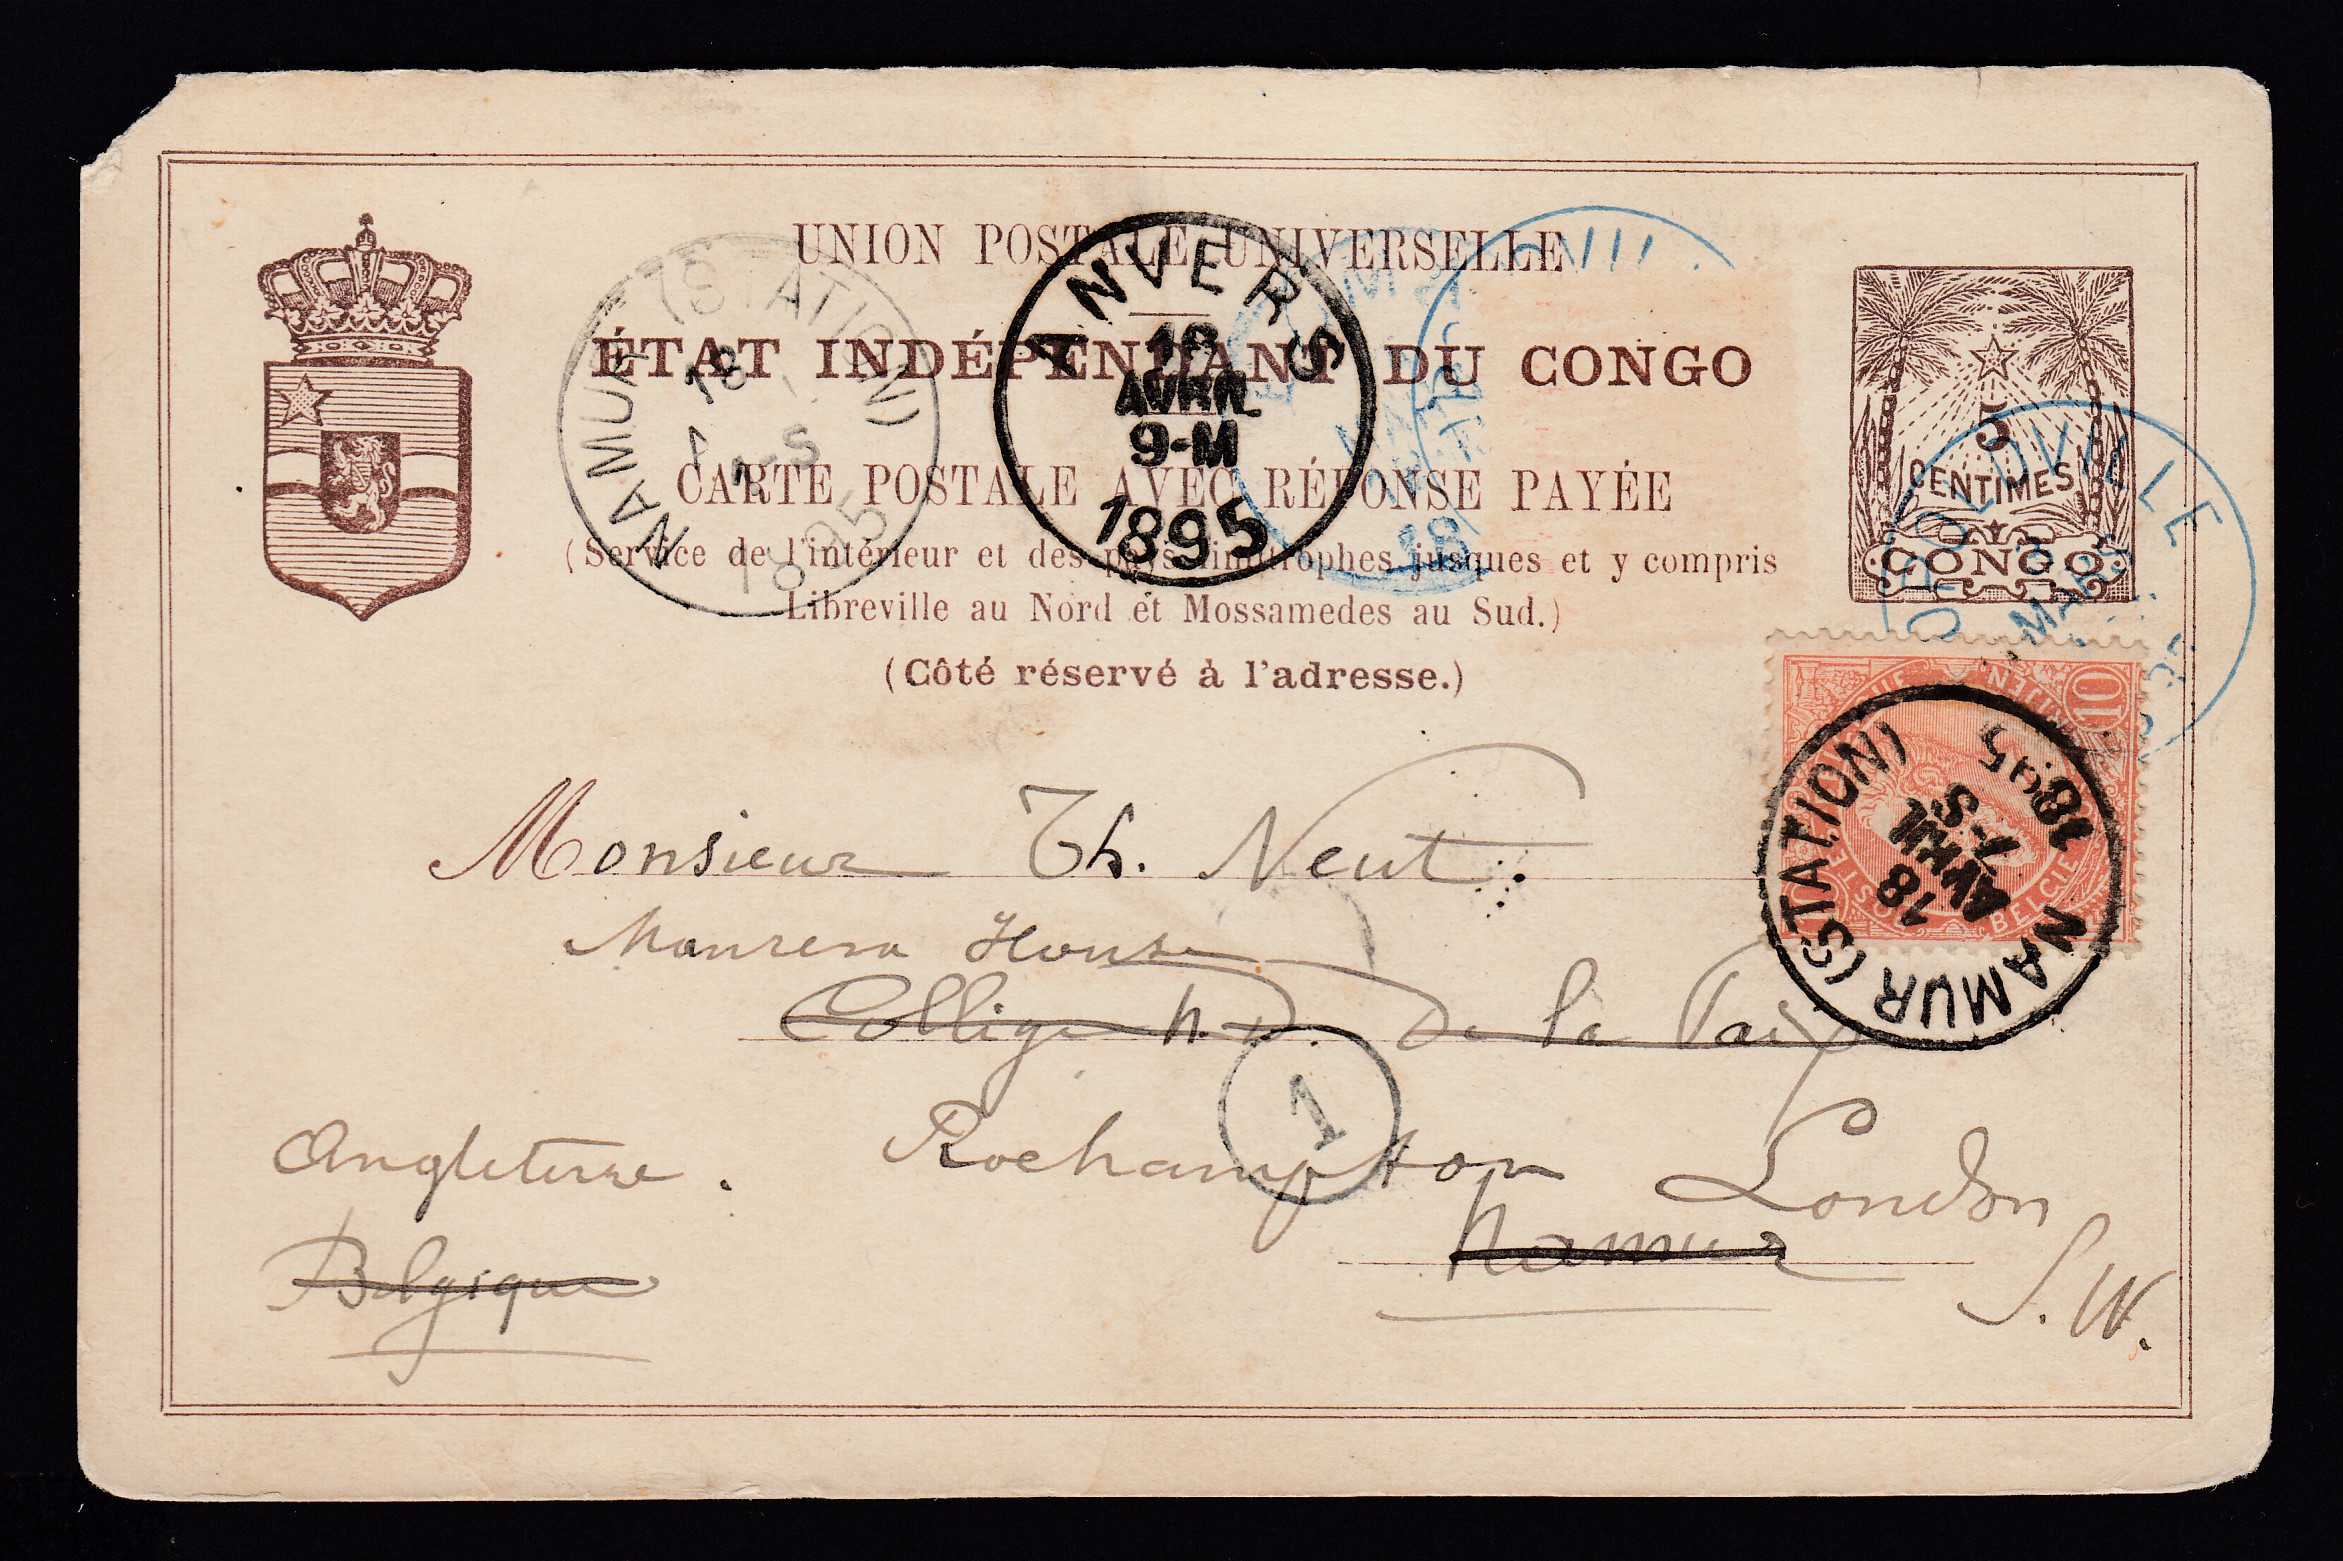 UNION POSTALE UNIVERSELLE
ÉTAT INDÉPENDANT DU CONGO
CARTE POSTALE AVEC RÉPONSE PAYÉE
(Service de l'intérieur et des pays limitrophes jusques et y compris
Libreville au Nord et Mossamedes au Sud.)
(Côté réservé à l'adresse.)
5
CENTIMES
CONGO
NAMUR (STATION)
18
1-S
1895
ANVERS
18
AVRIL
9-M
1895
MARS
10
BELGIE
NAMUR (STATION)
18
AVRIL
1-S
1895
Monsieur Th. Neut
Manresa House
Collège N. D. de la Paix
1
Angleterre. Roehampton London
Belgique Namur S.W.